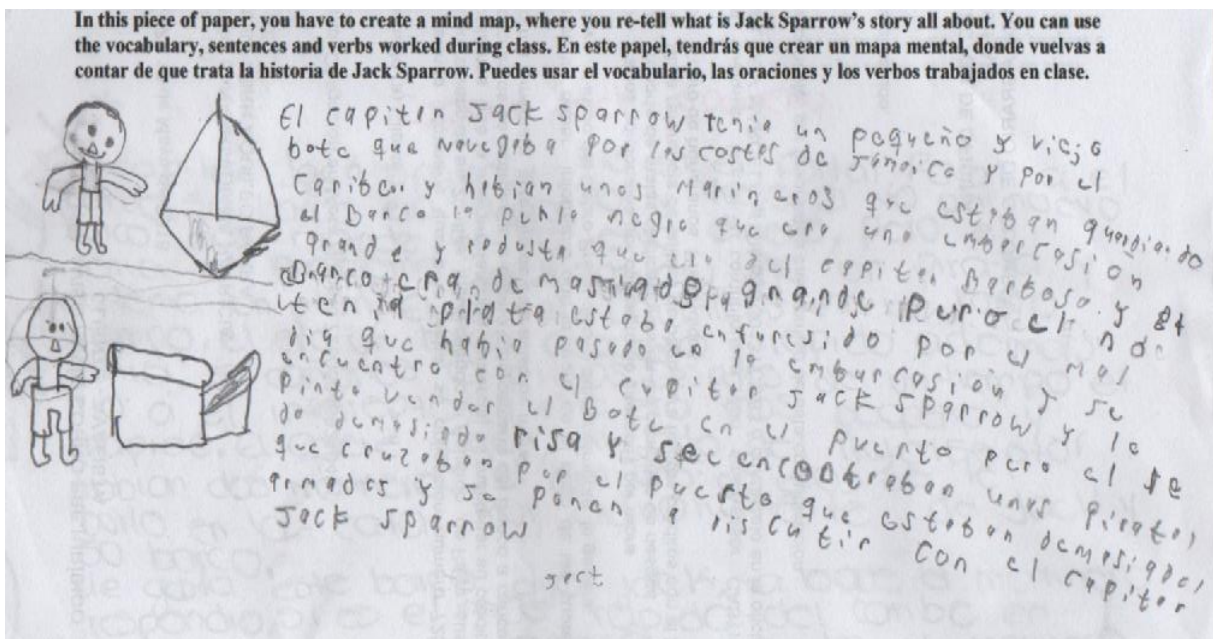 In this piece of paper, you have to create a mind map, where you re-tell what is Jack Sparrow's story all about. You can use
the vocabulary, sentences and verbs worked during class. En este papel, tendrás que crear un mapa mental, donde vuelvas a
contar de que trata la historia de Jack Sparrow. Puedes usar el vocabulario, las oraciones y los verbos trabajados en clase.
El capitan Jack sparrow tenia un pequeño y viejo
bote que navegaba por las costas de Jamaica y por el
Caribe y habian unos Marineros que estaban guardiando
el Barco la perla negra que era una embarcasion
grande y robusta que era del capitan Barbosa y el
Branco era demasiado grande pero el no
tenia plata estaba enfuresido por el mal
dia que habia pasado en la embarcasion y se
encuentro con el capitan Jack sparrow y le
pinto vender el Bote en el puerto pero el le
do demasiado risa y se encontraban unos piratas
que cruzaban por el puerto que estaban demasiados
armados y se ponen a discutir con el capitan
Jack sparrow